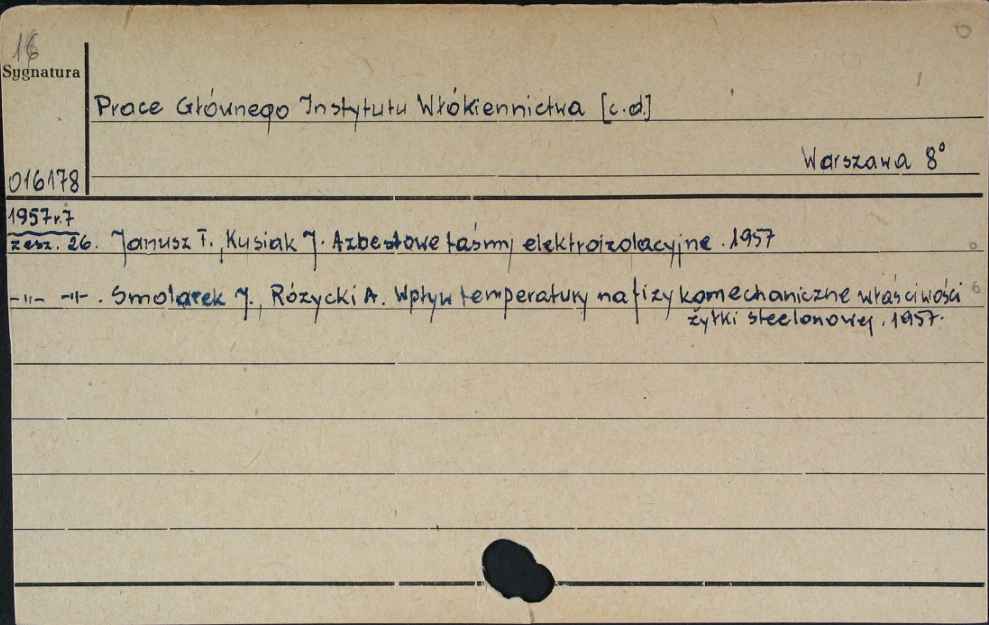 16
Sygnatura
Prace Głównego Instytutu Włókiennictwa [c.d.]
Warszawa 8°
016178
1957r.7
zesz. 26. Janusz T., Kusiak J. Azbestowe taśmy elektroizolacyjne. 1957
-"- -"- . Smolarek J., Różycki A. Wpływ temperatury na fizykomechaniczne właściwości
żyłki steelonowej. 1957.